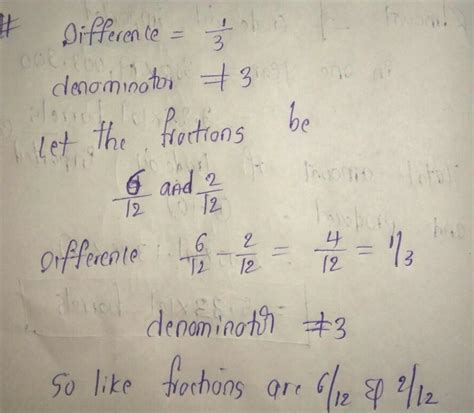 # Difference = 1/3
denominator ≠ 3
Let the fractions be
6/12 and 2/12
Difference 6/12 - 2/12 = 4/12 = 1/3
denominator ≠ 3
So like fractions are 6/12 & 2/12